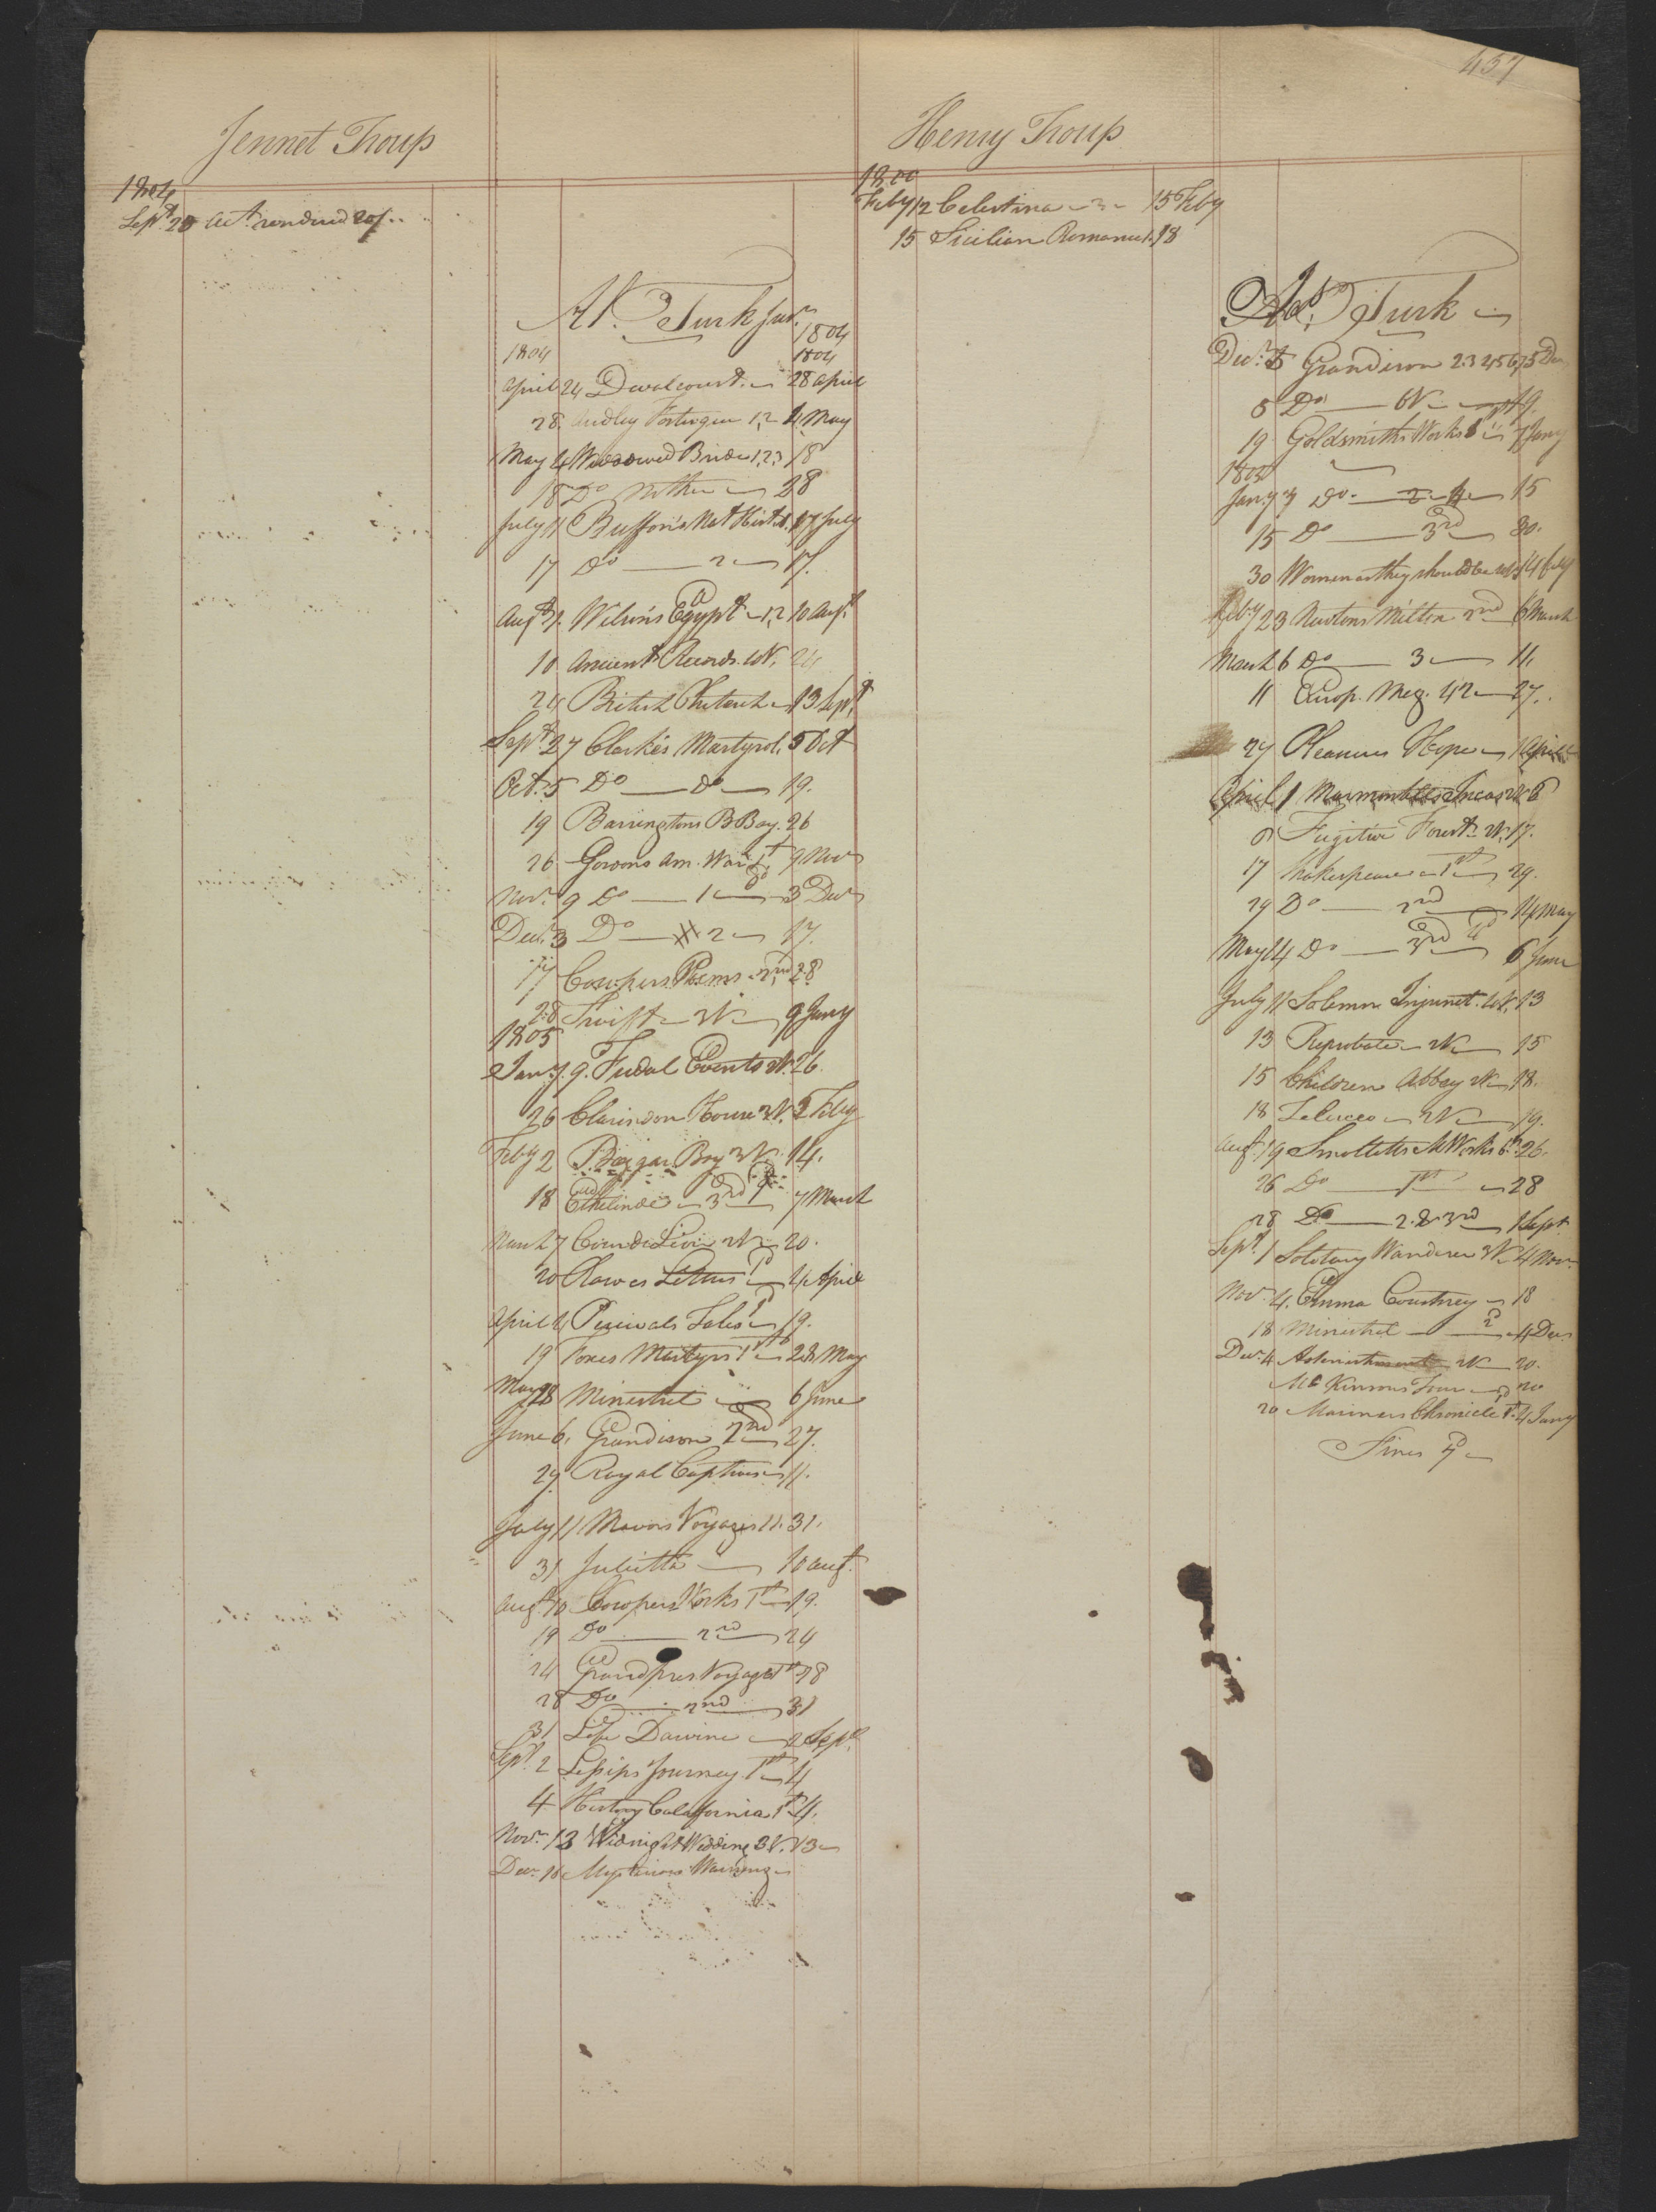 457
Jennet Troup
1804
Sept. 20 Act. rendered 20/
Ah. Turk Junr.
1804
1804 1804
April 24 Devalcourt 28 April
28 Audley Fortingue 1,2 4 May
May 4 Widdowed Bride 1,2,3 18
18 Do 28
July 11 Buffon's Nat Hist. 1. 17 July
17 Do 2 17.
Augt. 1. Wilson's Egypt 1,2 10 Augt.
10 Ancient Records. 4V. 24
24 British Plutarch 13 Sept.
Sept. 27 Clarke's Martyrol. 5 Oct
Oct. 5 Do Do 19.
19 Barringtons B Bay. 26
26 Gordons Am. War 1st 9 Nov
Novr. 9 Do 1 3 Decr
Decr. 3 Do 2 17.
17 Cowpers Poems 2nd 28
28 Swift 2V 9 Jany
1805
Jany. 9. Fudal Events 2V. 26.
26 Clarindon House 3V. 2 Feby
Feby 2 Beggar Boy 3V. 14.
18 Ethelinde 3rd 7 March
March 7 Coeur de Lion 2V 20.
20 Plowes Letters 4 April
April 4 Percivals Tales 19.
19 Foxes Martyrs 1st 28 May
May 28 Minestrel 6 June
June 6. Grandison 2nd 27.
29 Royal Captives 11.
July 11 Mavors Voyages 11. 31.
31 Julietta 10 Augt.
Augt. 10 Cowpers Works 1st 19.
19 Do 2nd 24
24 Grandpres Voyages 1st 28
28 Do 2nd 31
31 Life Darwine 2 Sept.
Sept. 2 Lesseps Journey 1st 4
4 History California 1st 4.
Novr. 13 Midnight Wedding 3V. 13
Decr. 16 Mysterious Warning
Henry Troup
1800
Feby 12 Celestina 3 15 Feby
15 Sicilian Romance 1. 18
Ad. Turk
Decr. 5 Grandison 2 3 4 5 6 7 5 Decr
5 Do 6V 19.
19 Goldsmiths Works 1 7 Jany
1805
Jany. 7 Do. 2 15
15 Do 3rd 30.
30 Women as they should be 14 Feby
Feby. 23 Newtons Milton 2nd 6 March
March 6 Do 3 11.
11 Europ. Mag. 42 27.
27 Pleasures Hope 1 April
April 1 Marmontells Incas 2V 6
6 Fugitive Forest. 2V. 17.
17 Shakespeare 1st 29.
29 Do 2nd 14 May
May 14 Do 3rd 6 June
July 11 Solemn Injunct. 4V. 13
13 Reprobate 2V 15
15 Children Abbey 2V 18.
18 Zeluco 2V 19.
Augt. 19 Smolletts M Works 6th 26.
26 Do 1st 28
28 Do 2. & 3rd 1 Sept.
Sept. 1 Solitary Wanderer 3V 4 Nov.
Nov. 4. Emma Courtney 18
18 Minestrel 2 4 Dec
Decr. 4 2V 20.
McKinsons Tour 20
20 Mariners Chronicle 1st. 4 Jany
Fines